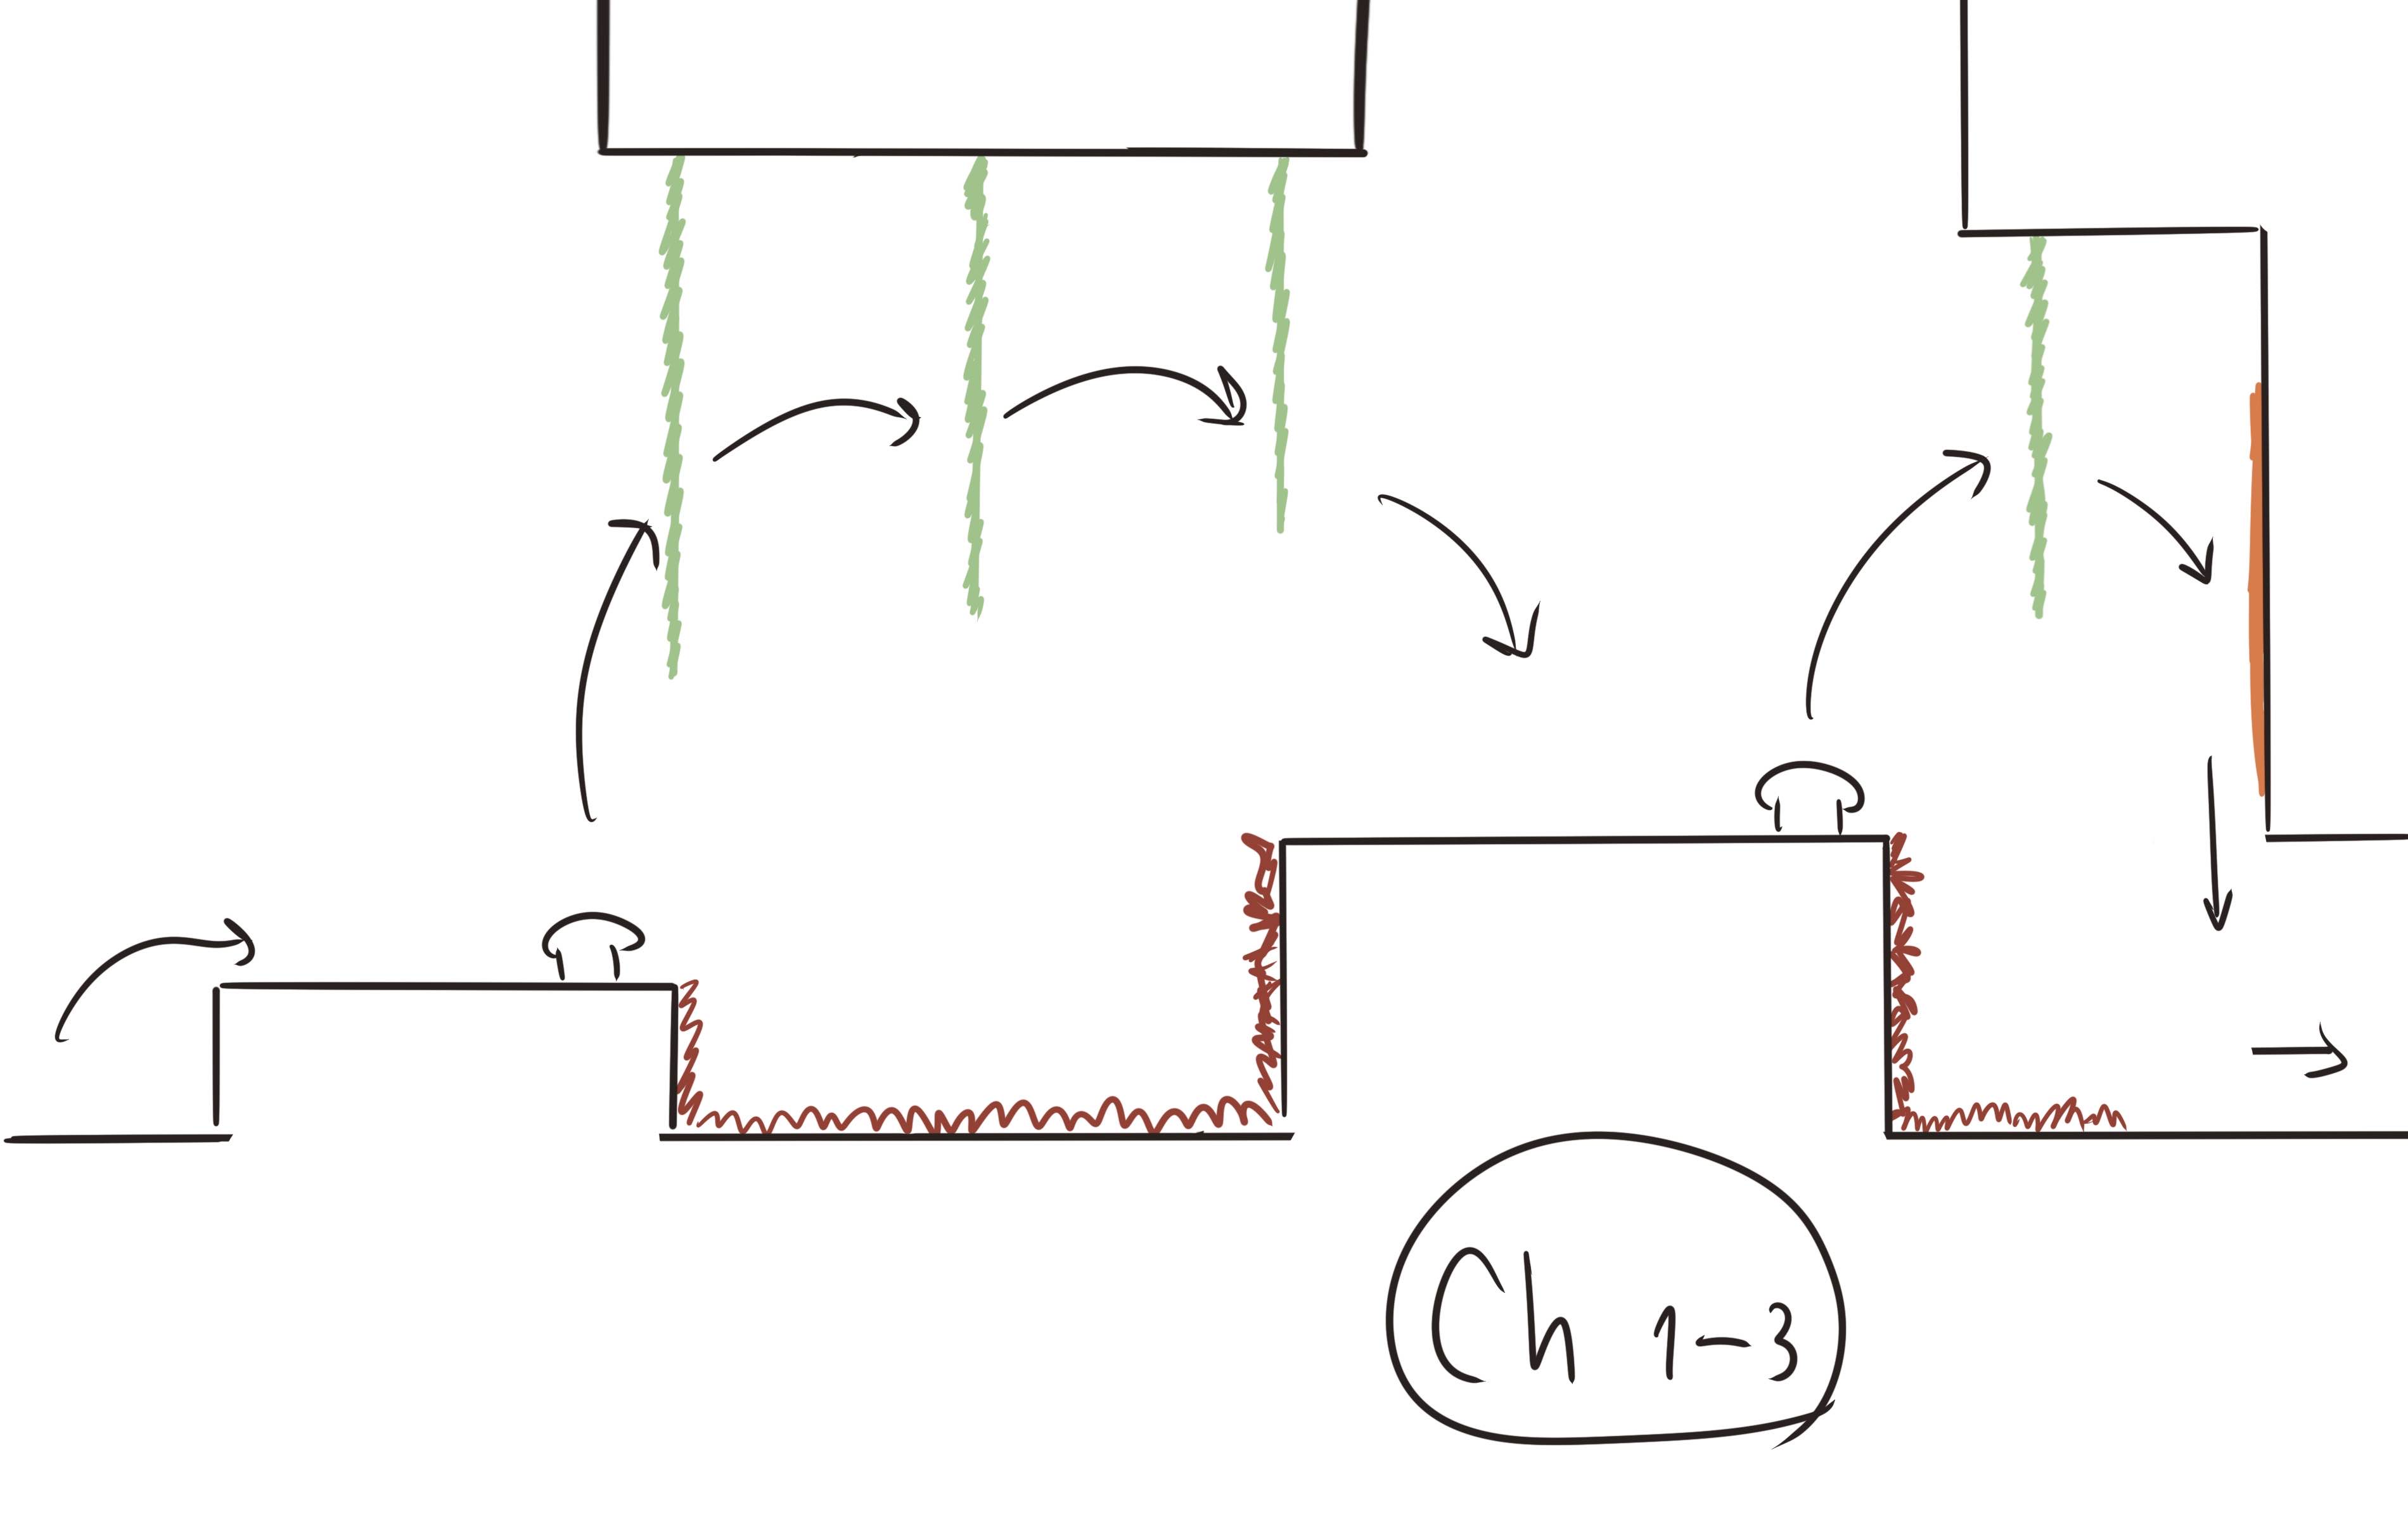 Ch 1-3